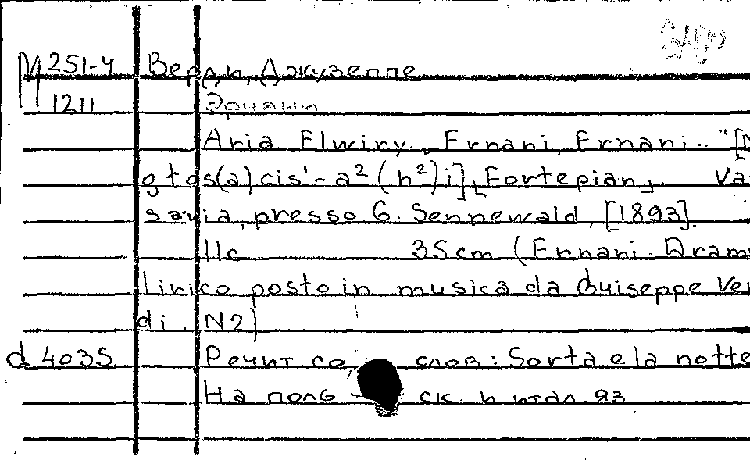 М 251-4 Верди, Джузеппе
1211 Эрнани
Aria Elwiry „Ernani, Ernani.." [N
głos(a) cis¹-a² (h²) i], [Fortepian]. Var
savia, presso G. Sennewald, [1893].
11c 35cm (Ernani. Dram
lirico posto in musica da Guiseppe Ver
di. N2)
d 4035 Речит со слов: Sorta e la notte
На поль ск. и итал. яз